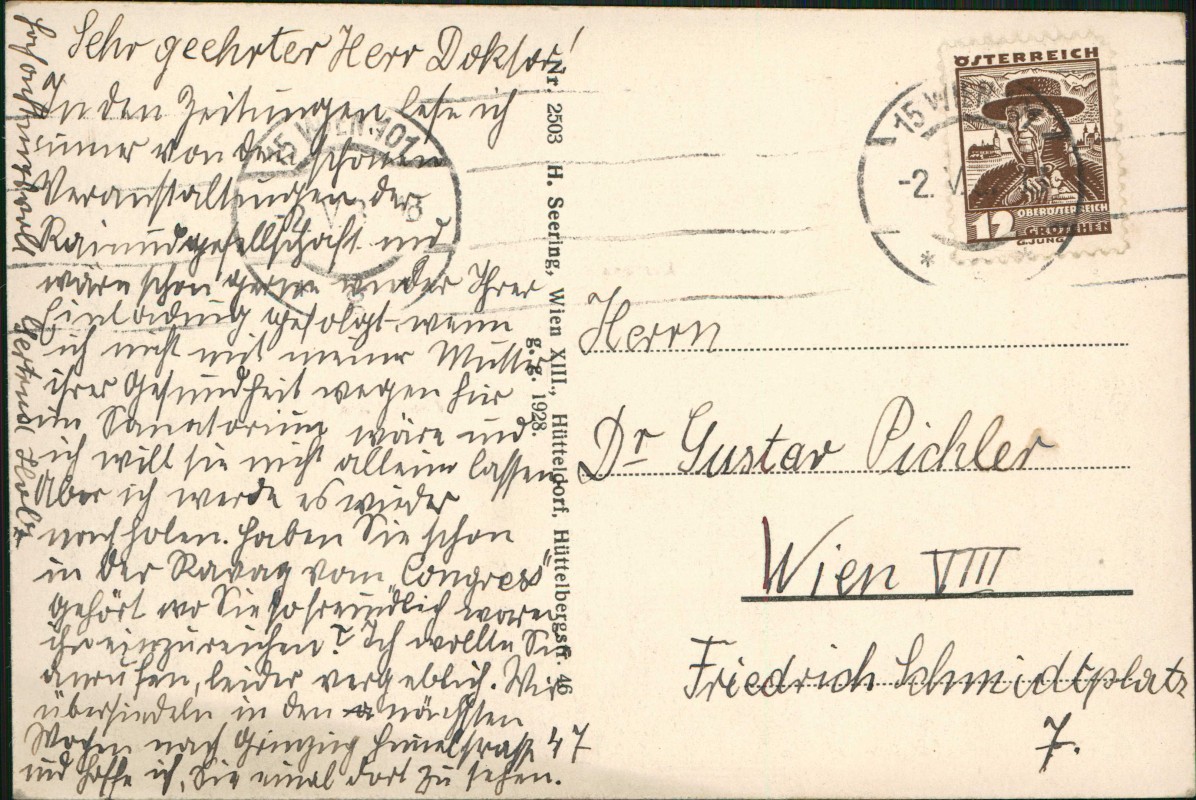 Sehr geehrter Herr Doktor!
In den Zeitungen lese ich
immer von den schönen
Veranstaltungen der
Raimundgesellschaft und
wäre schon gerne wieder Ihrer
Einladung gefolgt, wenn
ich nicht mit meiner Mutter
ihrer Gesundheit wegen hier
im Sanatorium wäre und
ich will sie nicht allein lassen
Aber ich werde es wieder
nachholen. Haben Sie schon
in der Ravag vom "Congress"
gehört wo Sie so freundlich waren
ihn einzureichen? Ich wollte Sie
anrufen, leider vergeblich. Wir
übersiedeln in den nächsten
Wochen nach Grinzing Himmelstrasse 47
und hoffe ich, Sie einmal dort zu sehen.
Hochachtungsvoll
Gertrud Holz
Nr. 2503 H. Seering, Wien XIII., Hütteldorf, Hüttelbergstr. 46
g. g. 1928.
15 WIEN 101
-2. V.
15 WIEN
-2. V.
ÖSTERREICH
OBERÖSTERREICH
12 GROSCHEN
G. JUNG
Herrn
Dr Gustav Pichler
Wien VIII
Friedrich Schmidtplatz
7.